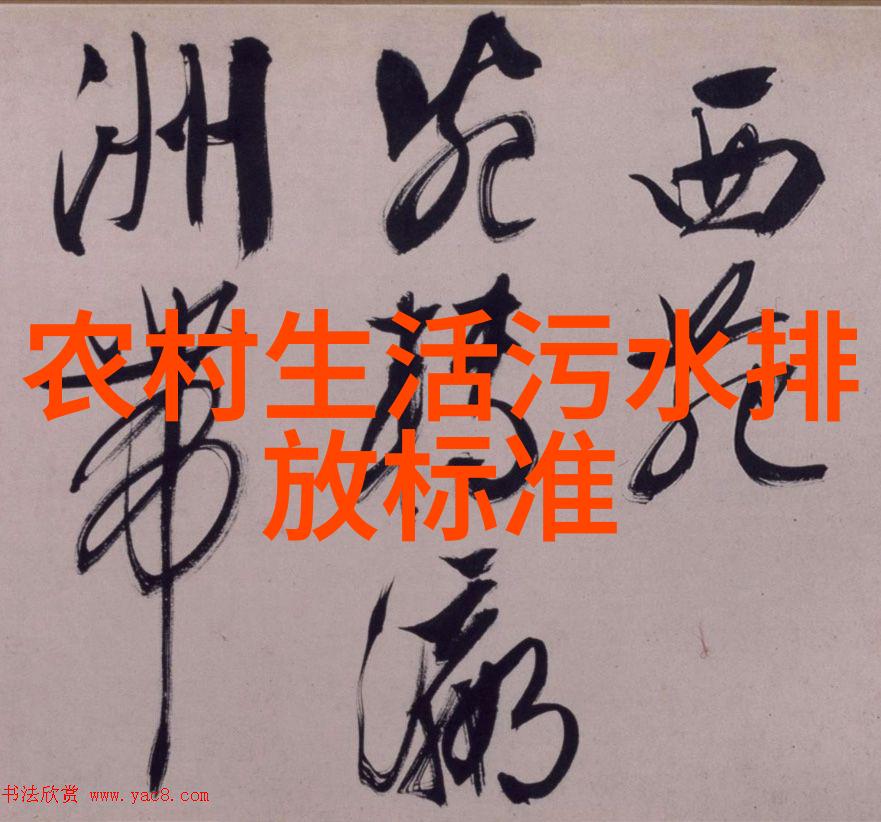 西苑
瀛
洲帶
农村生活污水排
放标准
书法欣赏 www.yac8.com